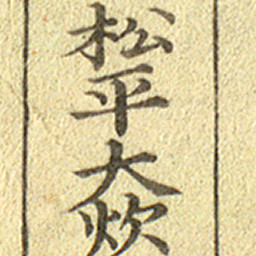 松平大炊